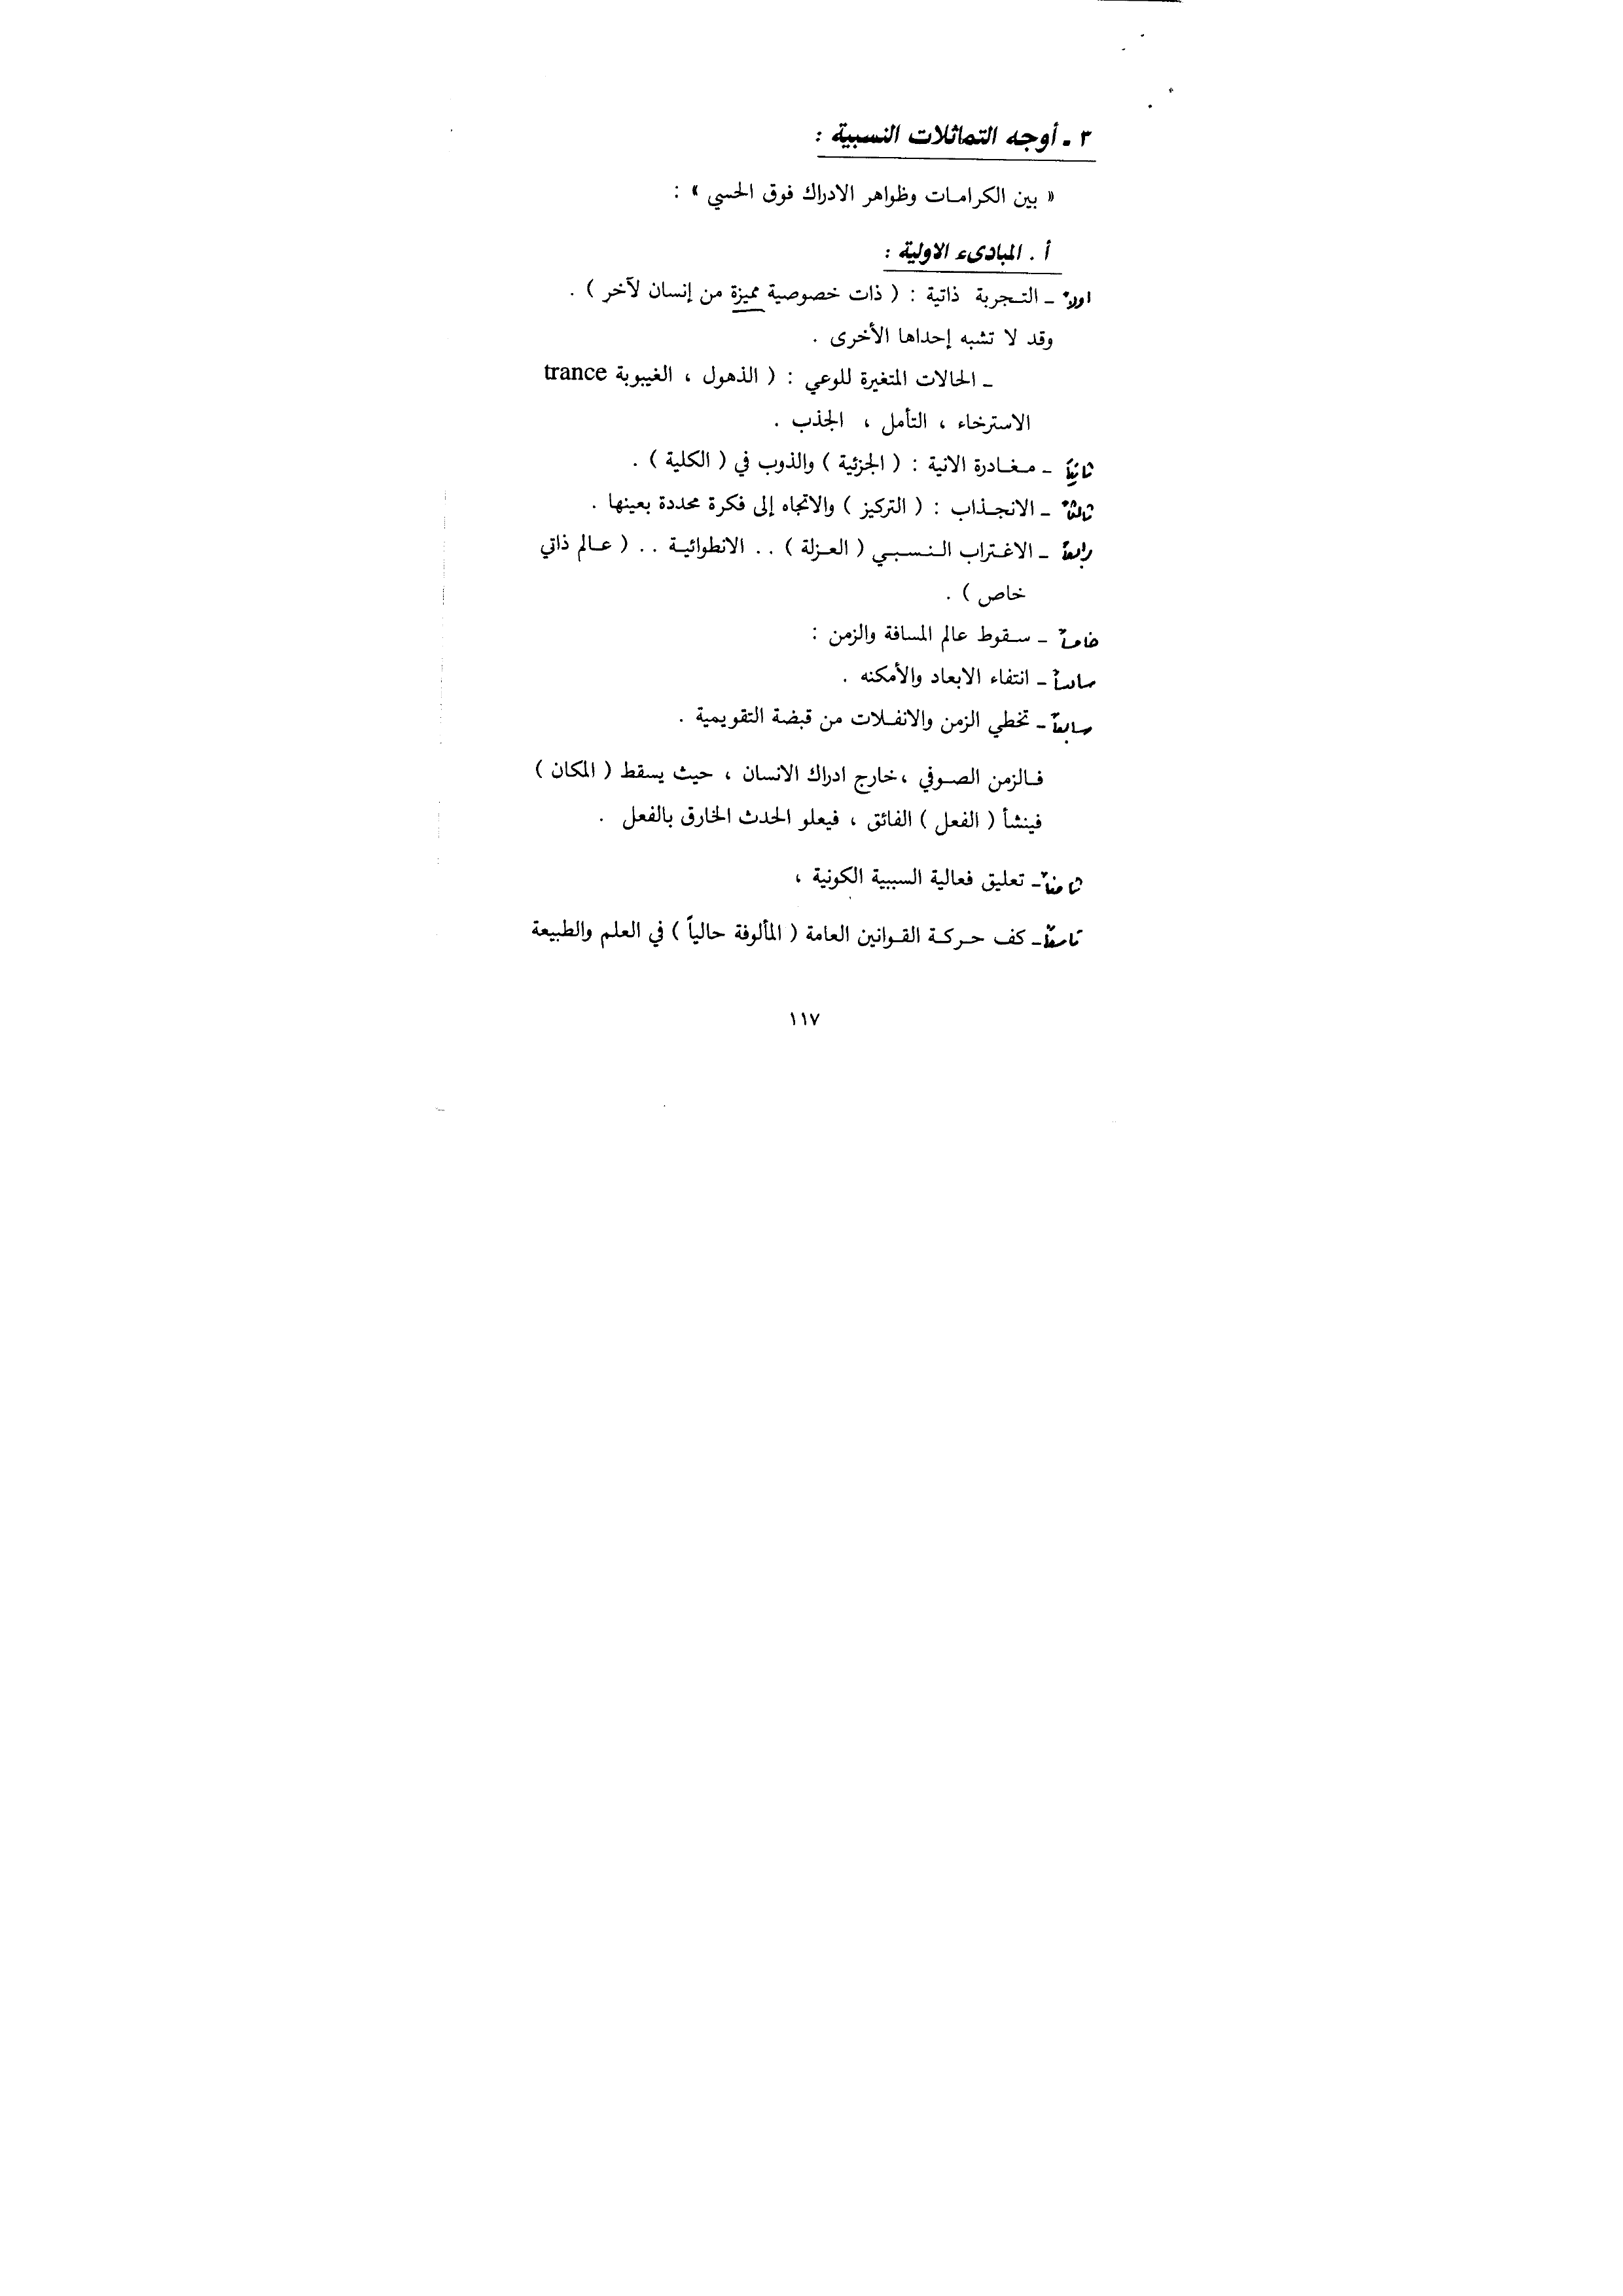 ٣ - أوجه التماثلات النسبية :
« بين الكرامات وظواهر الادراك فوق الحسي » :
أ . المبادىء الاولية :
اولاً - التجربة ذاتية : ( ذات خصوصية مميزة من إنسان لآخر ) .
وقد لا تشبه إحداها الأخرى .
- الحالات المتغيرة للوعي : ( الذهول ، الغيبوبة trance
الاسترخاء ، التأمل ، الجذب .
ثانياً - مغادرة الانية : ( الجزئية ) والذوب في ( الكلية ) .
ثالثاً - الانجذاب : ( التركيز ) والاتجاه إلى فكرة محددة بعينها .
رابعاً - الاغتراب النسبي ( العزلة ) . . الانطوائية . . ( عالم ذاتي
خاص ) .
خامساً - سقوط عالم المسافة والزمن :
سادساً - انتفاء الابعاد والأمكنه .
سابعاً - تخطي الزمن والانفلات من قبضة التقويمية .
فالزمن الصوفي ، خارج ادراك الانسان ، حيث يسقط ( المكان )
فينشأ ( الفعل ) الفائق ، فيعلو الحدث الخارق بالفعل .
ثامناً - تعليق فعالية السببية الكونية ،
تاسعاً - كف حركة القوانين العامة ( المألوفة حالياً ) في العلم والطبيعة
١١٧